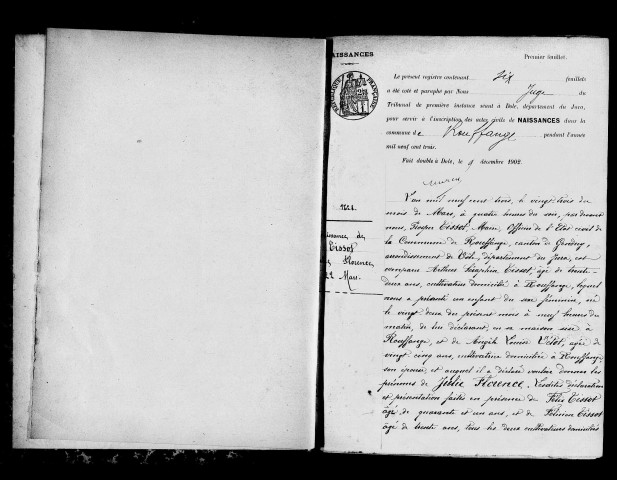 NAISSANCES
Premier feuillet.
RÉPUBLIQUE FRANÇAISE
Le présent registre contenant six feuillets
a été coté et paraphé par Nous Juge du
Tribunal de première instance séant à Dole, département du Jura,
pour servir à l'inscription des actes civils de NAISSANCES dans la
commune de Rouffange pendant l'année
mil neuf cent trois.
Fait double à Dole, le 9 décembre 1902.
N° 1
Naissance de
Tissot
Florence,
22 Mars.
L'an mil neuf cent trois, à vingt-trois du
mois de Mars, à quatre heures du soir, par devant
nous, Tissot, Maire, Officier de l'Etat civil de
la Commune de Rouffange, canton de Gendrey,
arrondissement de Dole, département du Jura, est
comparu Arthur Séraphin Tissot, âgé de trente-
deux ans, cultivateur domicilié à Rouffange, lequel
nous a présenté un enfant du sexe féminin, né
le vingt deux du présent mois à neuf heures du
matin, de lui déclarant, en sa maison sise à
Rouffange, et de Angèle Louise, âgée de
vingt cinq ans, cultivatrice domiciliée à Rouffange
son épouse et auquel il a déclaré vouloir donner les
prénoms de Julie Florence. Lesdites déclaration
et présentation faites en présence de Félix Tissot
âgé de quarante et un ans, et de Tissot
âgé de trente ans, tous les deux cultivateurs domiciliés